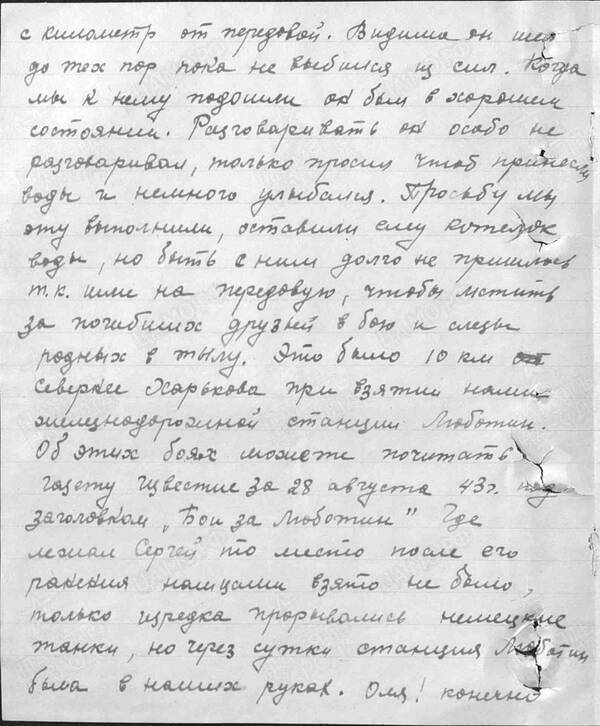 с километр от передовой. Видима он шел
до тех пор пока не выбился из сил. Когда
мы к нему подошли он был в хорошем
состоянии. Разговаривать он особо не
разговаривал, только просил чтоб принесли
воды и немного улыбался. Просьбу мы
эту выполнили, оставили ему котелок
воды, но быть с ним долго не пришлось
т.к. шли на передовую, чтобы мстить
за погибших друзьей в бою и слезы
родных в тылу. Это было 10 км от
Севернее Харькова при взятии нами
железнодорожной станции Люботин.
Об этих боях можете почитать
газету Известие за 28 августа 43г. под
заголовком „Бои за Люботин" Где
лежал Сергей то место после его
ранения немцами взято не было,
только изредка прорывались немецкие
танки, но через сутки станция Люботин
была в наших руках. Оля! конечно